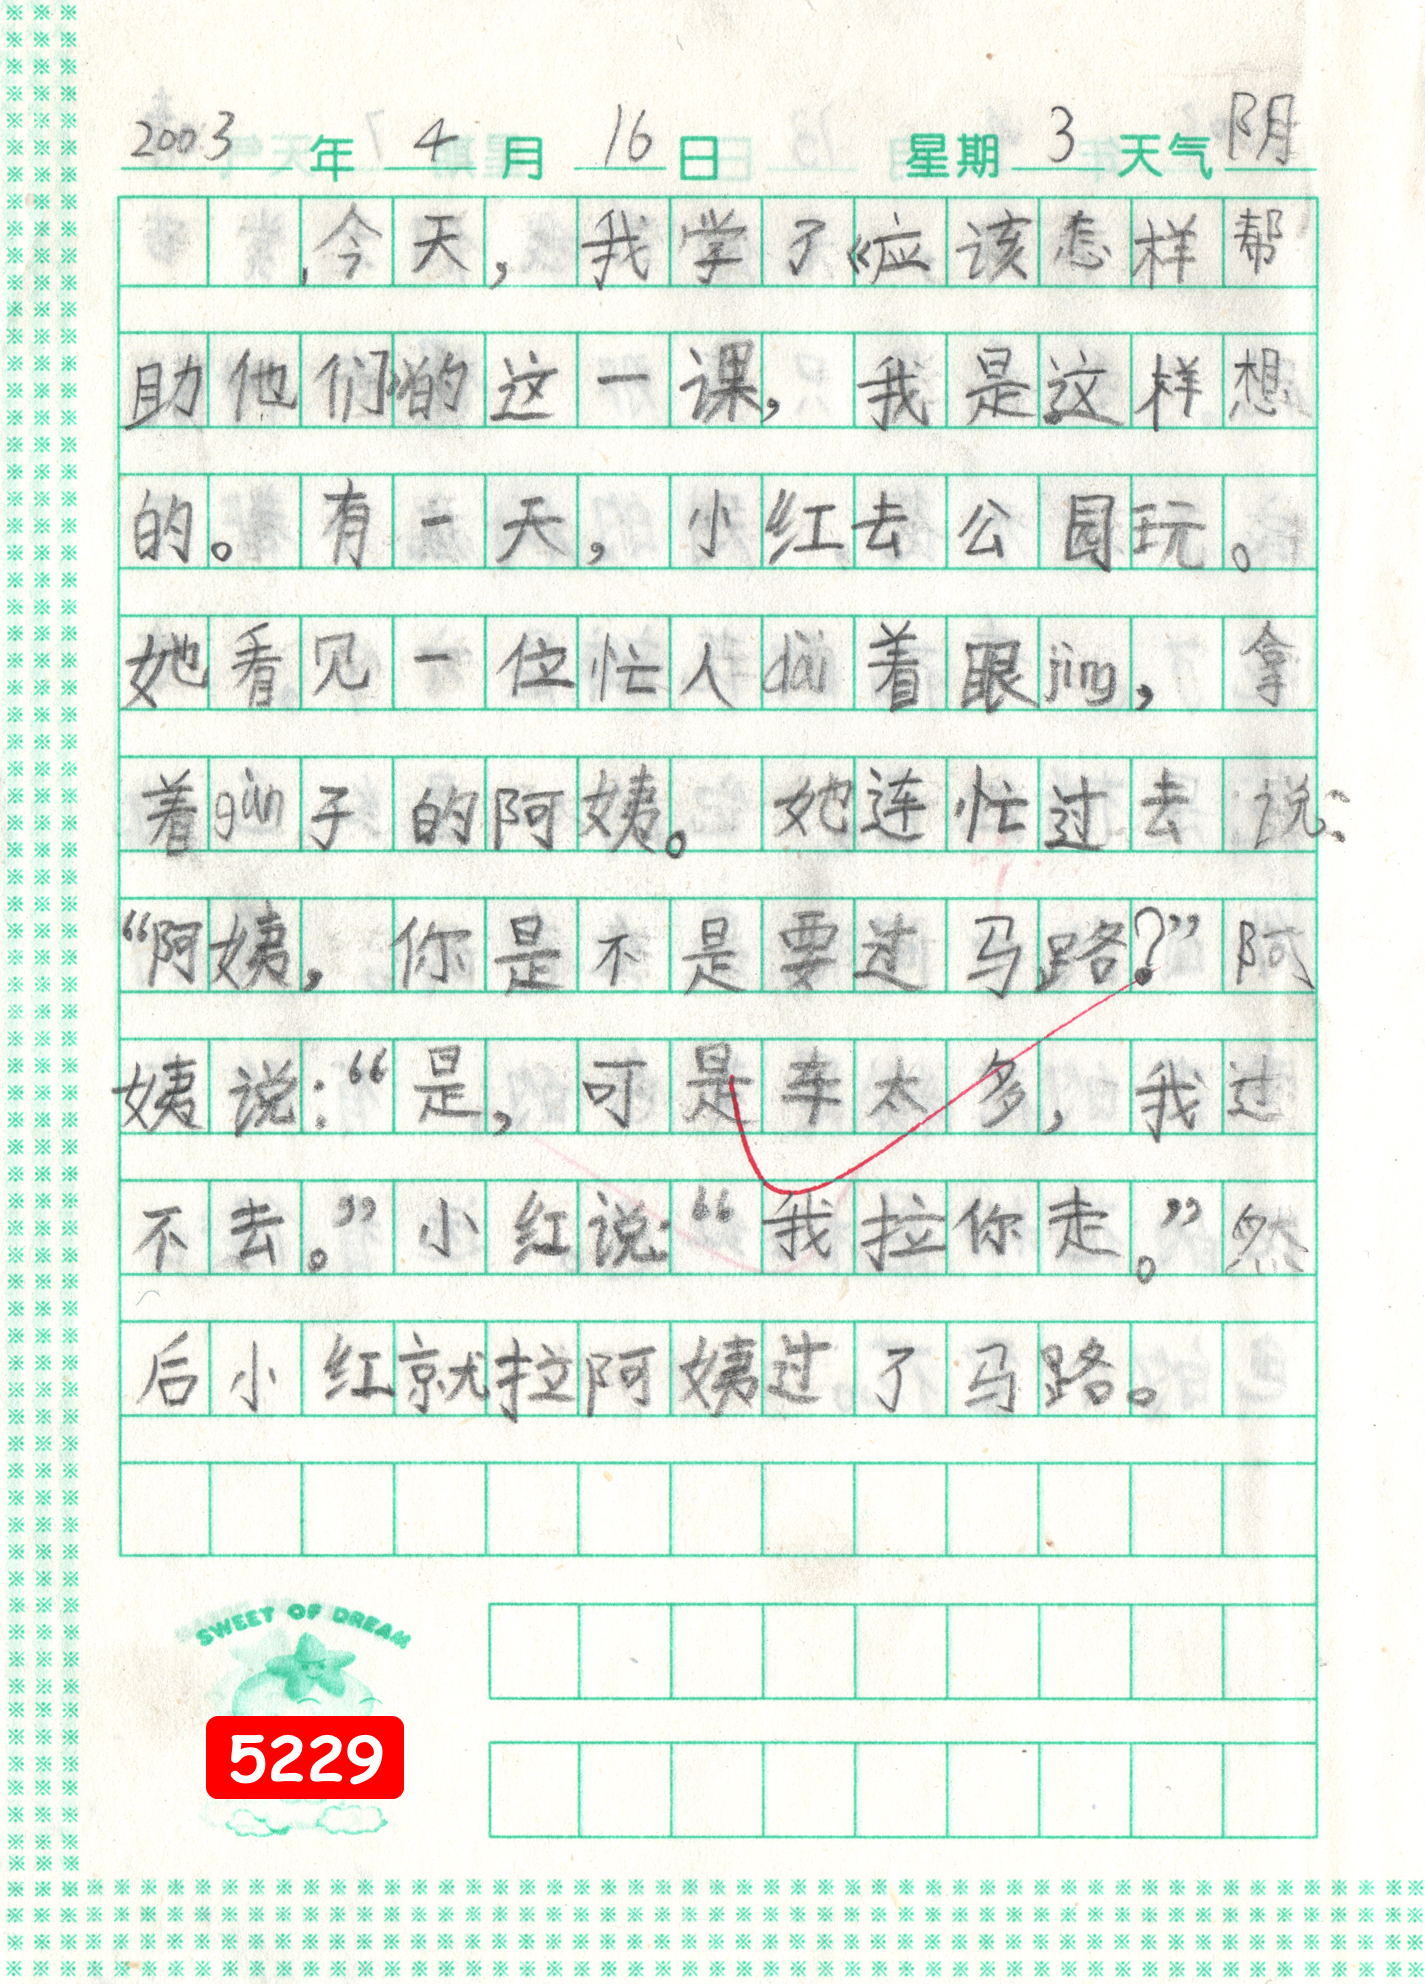 2003年4月16日 星期3天气阴
今天，我学了《应该怎样帮
助他们》的这一课，我是这样想
的。有一天，小红去公园玩。
她看见一位忙人dài着眼jìng，拿
着gùn子的阿姨。她连忙过去说：
“阿姨，你是不是要过马路？”阿
姨说：“是，可是车太多，我过
不去。”小红说：“我拉你走。”然
后小红就拉阿姨过了马路。
SWEET OF DREAM
5229